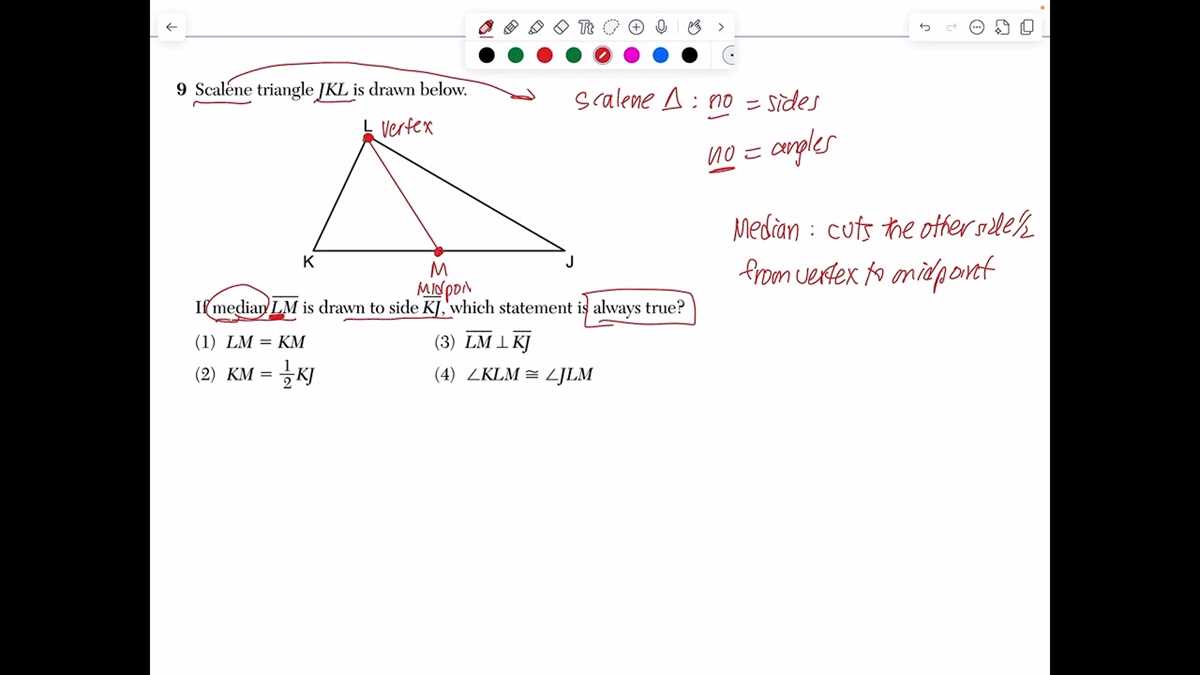 9 Scalene triangle JKL is drawn below.
Scalene Δ : no = sides
no = angles
L vertex
Median : cuts the other side 1/2
from vertex to midpoint
K
M
J
Midpoin
If median LM is drawn to side KJ, which statement is always true?
(1) LM = KM
(3) LM ⊥ KJ
(2) KM = 1/2 KJ
(4) ∠KLM ≅ ∠JLM